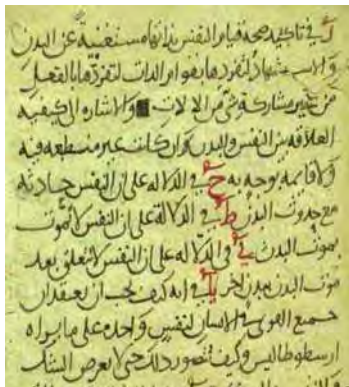 في تاكيد صحة قيام النفس بذاتها مستغنية عن البدن
والاستشهاد لتفردها بقوام الذات لتفردها بالفعل
من غير مشاركة شي من الالات والاشاره الى كيفيه
العلاقه بين النفس والبدن وان كانت غير منطبعه فيه
ولا قايمه بوجه به ح في الدلاله على ان النفس حادثه
مع حدوث البدن ط في الدلالة على ان النفس لا تموت
بموت البدن ي في الدلاله على ان النفس لا تتعلق بعد
موت البدن ببدن اخر يا في انه كيف يجب ان يعتقد ان
جميع القوى للانسان لنفس واحده على ما يراه
ارسطوطاليس وكيف تصور ذلك حتى لا يعرض الشك